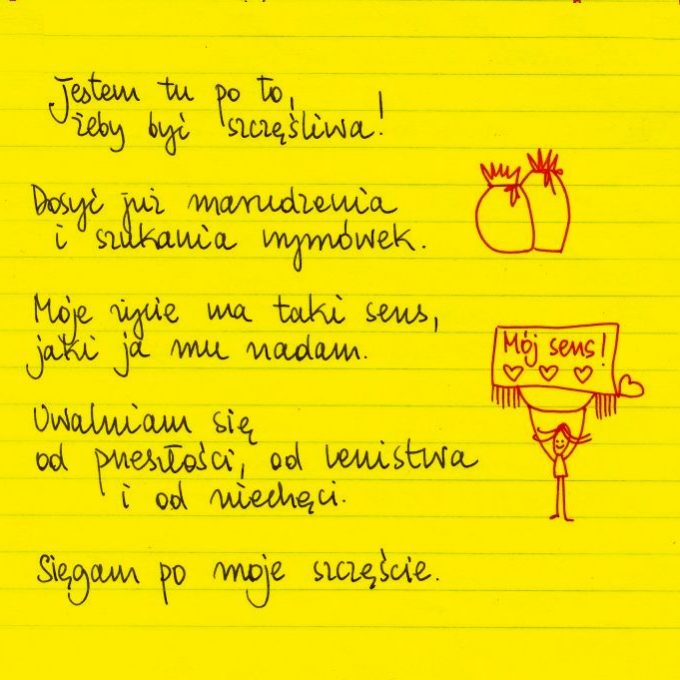 Jestem tu po to,
żeby być szczęśliwa!
Dosyć już marudzenia
i szukania wymówek.
Moje życie ma taki sens,
jaki ja mu nadam.
Mój sens!
Uwalniam się
od przeszłości, od lenistwa
i od niechęci.
Sięgam po moje szczęście.